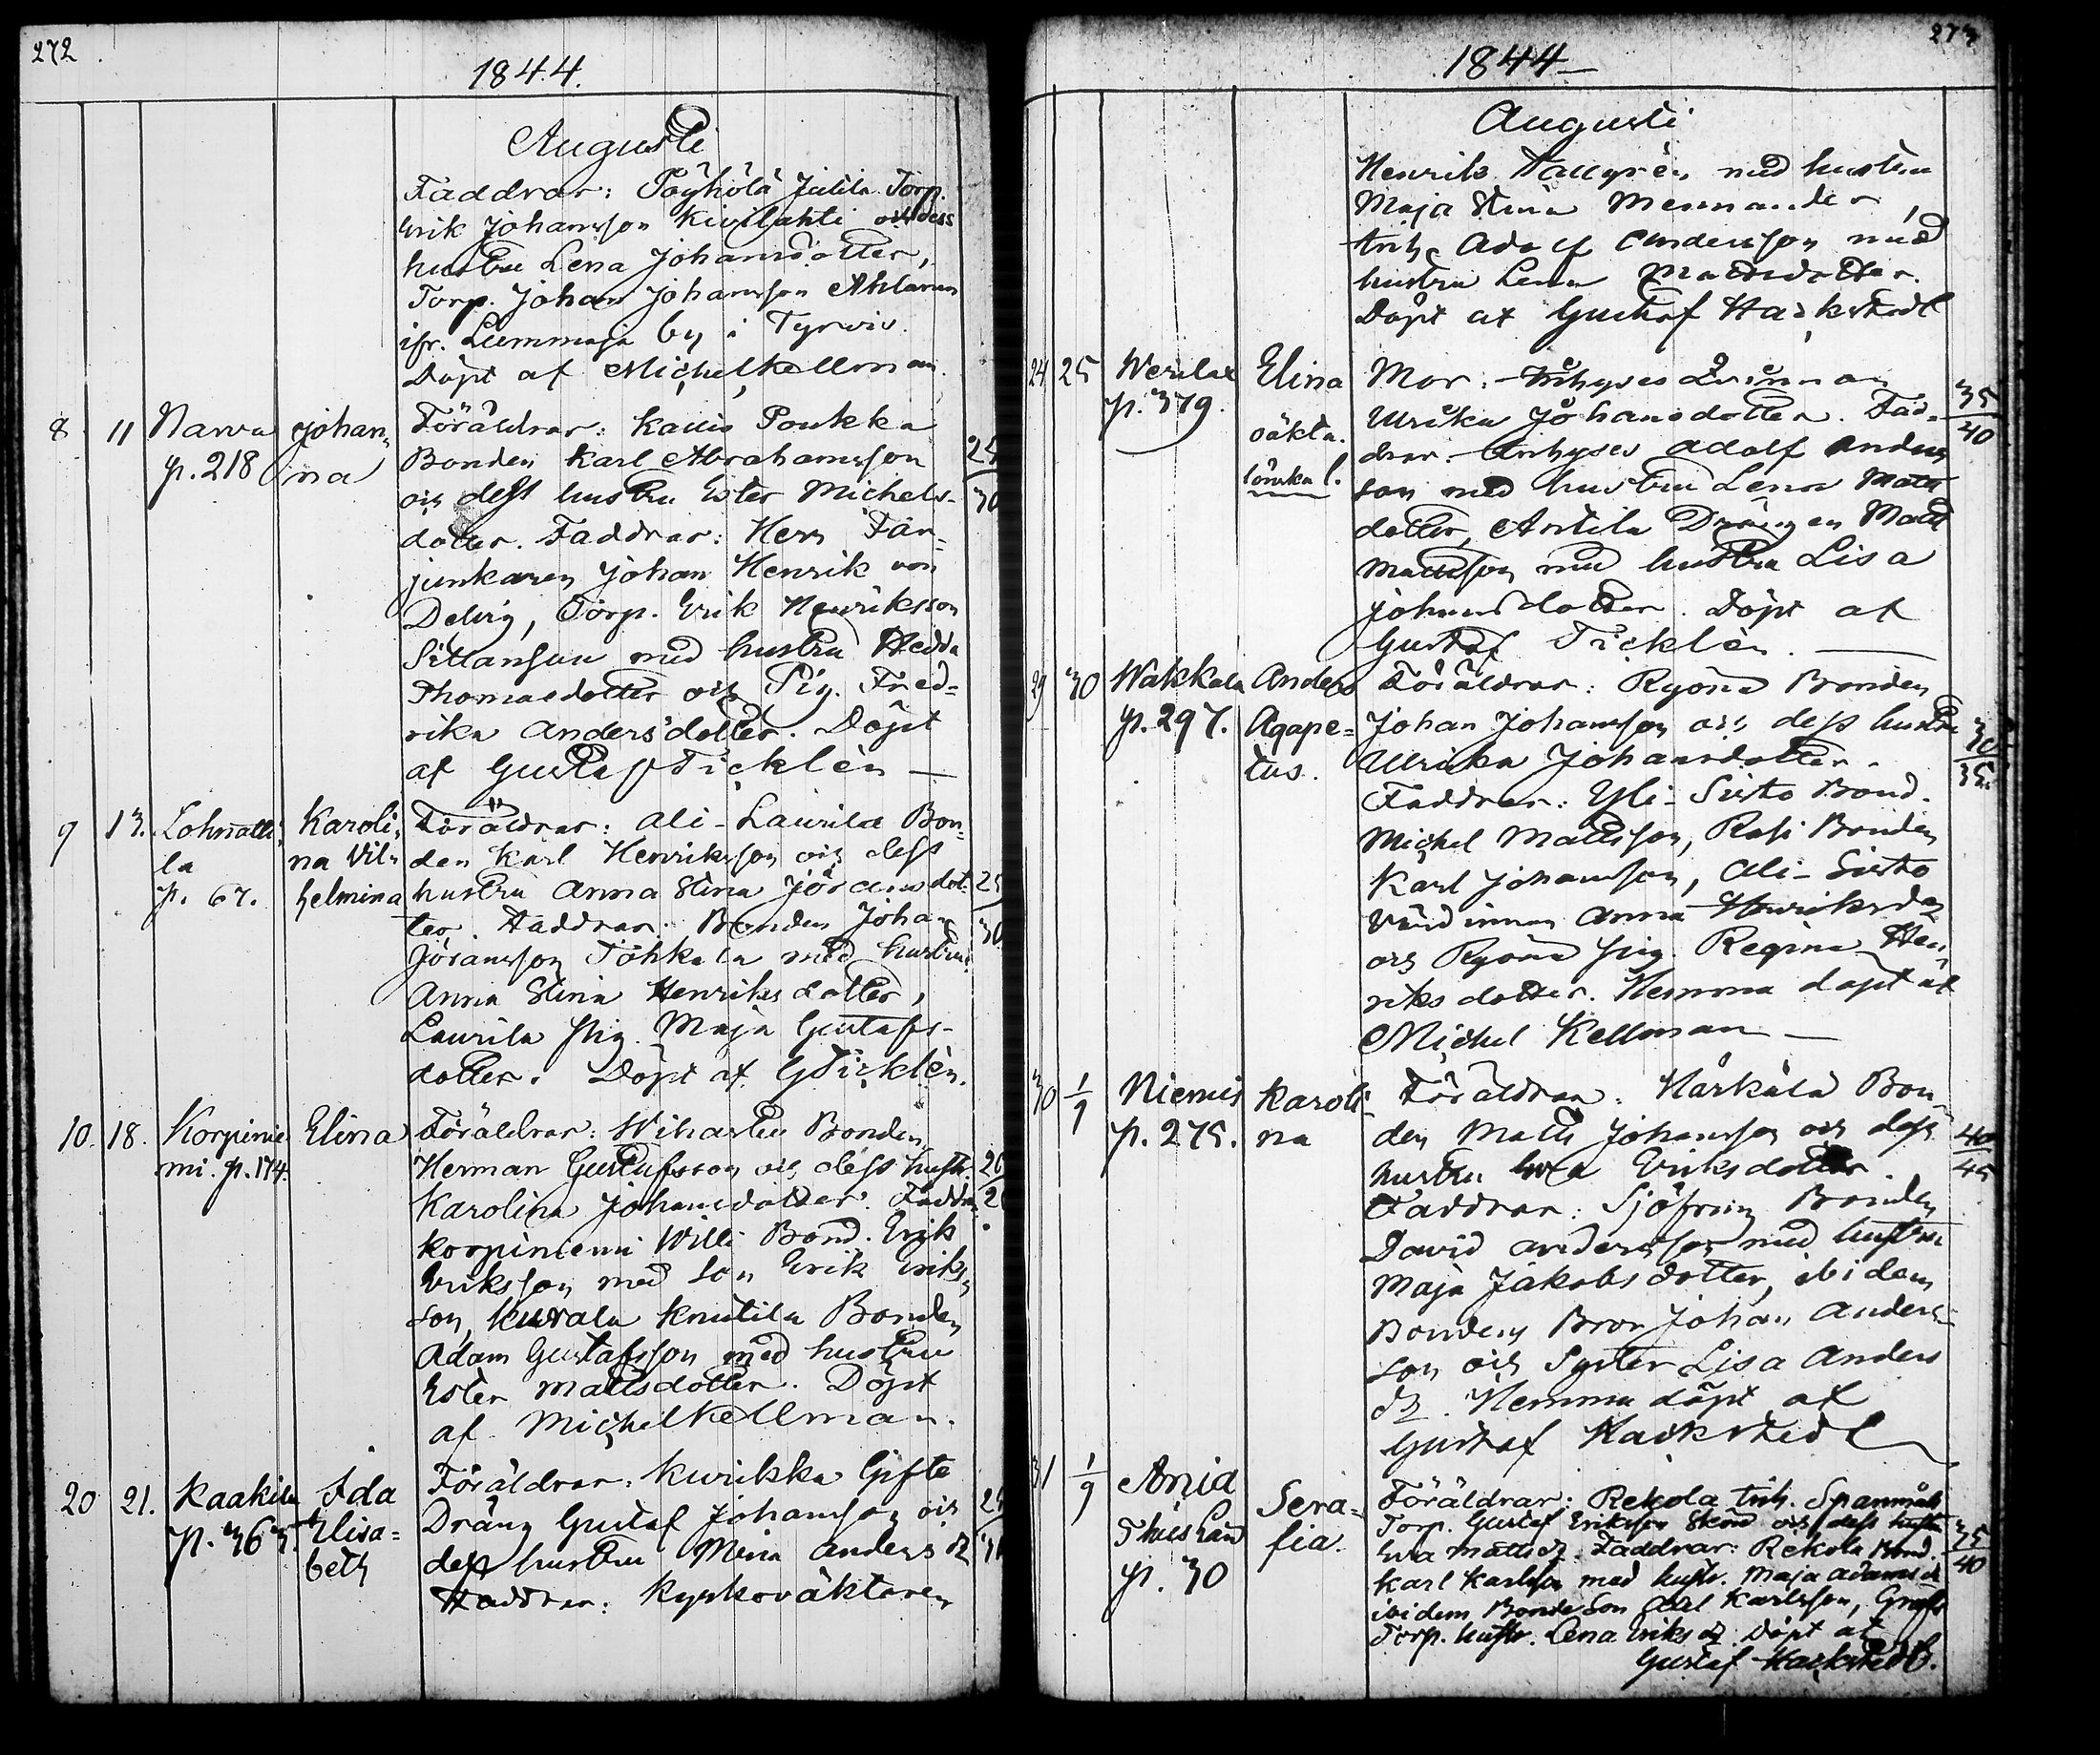 272
1844.
Augusti
Faddrar: Pöyhölä Jutila Torp.
Erik Johansson Kivilahti och dess
hustru Lena Johansdotter,
Torp. Johan Johansson Ahlman
ifr. Lummaja by i Tyrwis.
Döpt af Michel Kellman.
8 11 Narva Johan- Föräldrar: Kauis Poukka
p. 218 na Bonden Karl Abrahamsson
och dess hustru Ester Michels-
dotter. Faddrar: Herr Fän-
junkaren Johan Henrik von
Delvig, Torp. Erik Henriksson
Sillansuu med hustru Hedda
Thomasdotter och Pig. Fred-
rika Andersdotter. Döpt
af Gustaf Ticklén —
9 13. Lohnatti- Karoli- Föräldrar: Ali-Laurila Bon-
la na Vil- den Karl Henriksson och dess
p. 67. helmina hustru Anna Stina Jöransdot-
ter. Faddrar: Bonden Johan
Jöransson Töhkala med hustru
Anna Stina Henriksdotter,
Laurila Pig. Maja Gustafs-
dotter. Döpt af G Ticklén.
10. 18. Korpinie- Elina Föräldrar: Wiharlu Bonden
mi. p. 174. Herman Gustafsson och dess hustr.
Karolina Johansdotter. Faddrar
Korpiniemi Willi Bond. Erik
Eriksson med Son Erik Eriks-
son, Kurala Knutila Bonden
Adam Gustafsson med hustru
Ester Mattsdotter. Döpt
af Michel Kellman.
20 21. Kaakila Ida Föräldrar: Kurikka Gifte
p. 363. Elisa- Dräng Gustaf Johansson och
beth dess hustru Mina Anders dr
Faddrar: Kyrkoväktaren
273
1844—
Augusti
Henrik Tallgrén med hustru
Maja Stina Mennander,
Inh. Adolf Andersson med
hustru Lena Mattsdotter.
Döpt af Gustaf Hackstedt
24 25 Werilä Elina Mor: Inhyses Qvinnan 35
p. 379. oäkta. Ulrika Johansdotter. Fad- 40
drar: Inhyses Adolf Anders-
son med hustru Lena Matts
dotter, Antila Drängen Matts
Mattsson med hustru Lisa
Johansdotter. Döpt af
Gustaf Ticklén. —
29 30 Wakkala Anders Föräldrar: Ryönä Bonden
p. 297. Agape- Johan Johansson och dess hustru 30
tus. Ulrika Johansdotter. 35
Faddrar: Yli-Sirto Bond.
Michel Mattsson, Rasi Bonden
Karl Johansson, Ali-Sirto
Värdinnan Anna Henriksdr
och Ryönä Pig. Regina Hen-
riksdotter. Hemma döpt af
Michel Kellman —
30 1/9 Niemis Karoli- Föräldrar: Härkälä Bon-
p. 275. na den Matts Johansson och dess 40
hustru Eva Eriksdotter 45
Faddrar: Sjöfring Bonden
David Andersson med hustru
Maja Jakobsdotter, ibidem
Bondens Bror Johan Anders-
son och Syster Lisa Anders
dr. Hemma döpt af
Gustaf Hackstedt
31 1/9 Ania Sera- Föräldrar: Rekola Inh. Spanmåls
fia. Torp. Gustaf Eriksson Skön och dess hustru 35
p. 30 Eva Mattsdr. Faddrar: Rekola Bond. 40
Karl Karlsson med hustr. Maja Adamsdr
ibidem Bonde Son Carl Karlsson,
Torp. hustr. Lena Eriksdr. Döpt af
Gustaf Hackstedt.